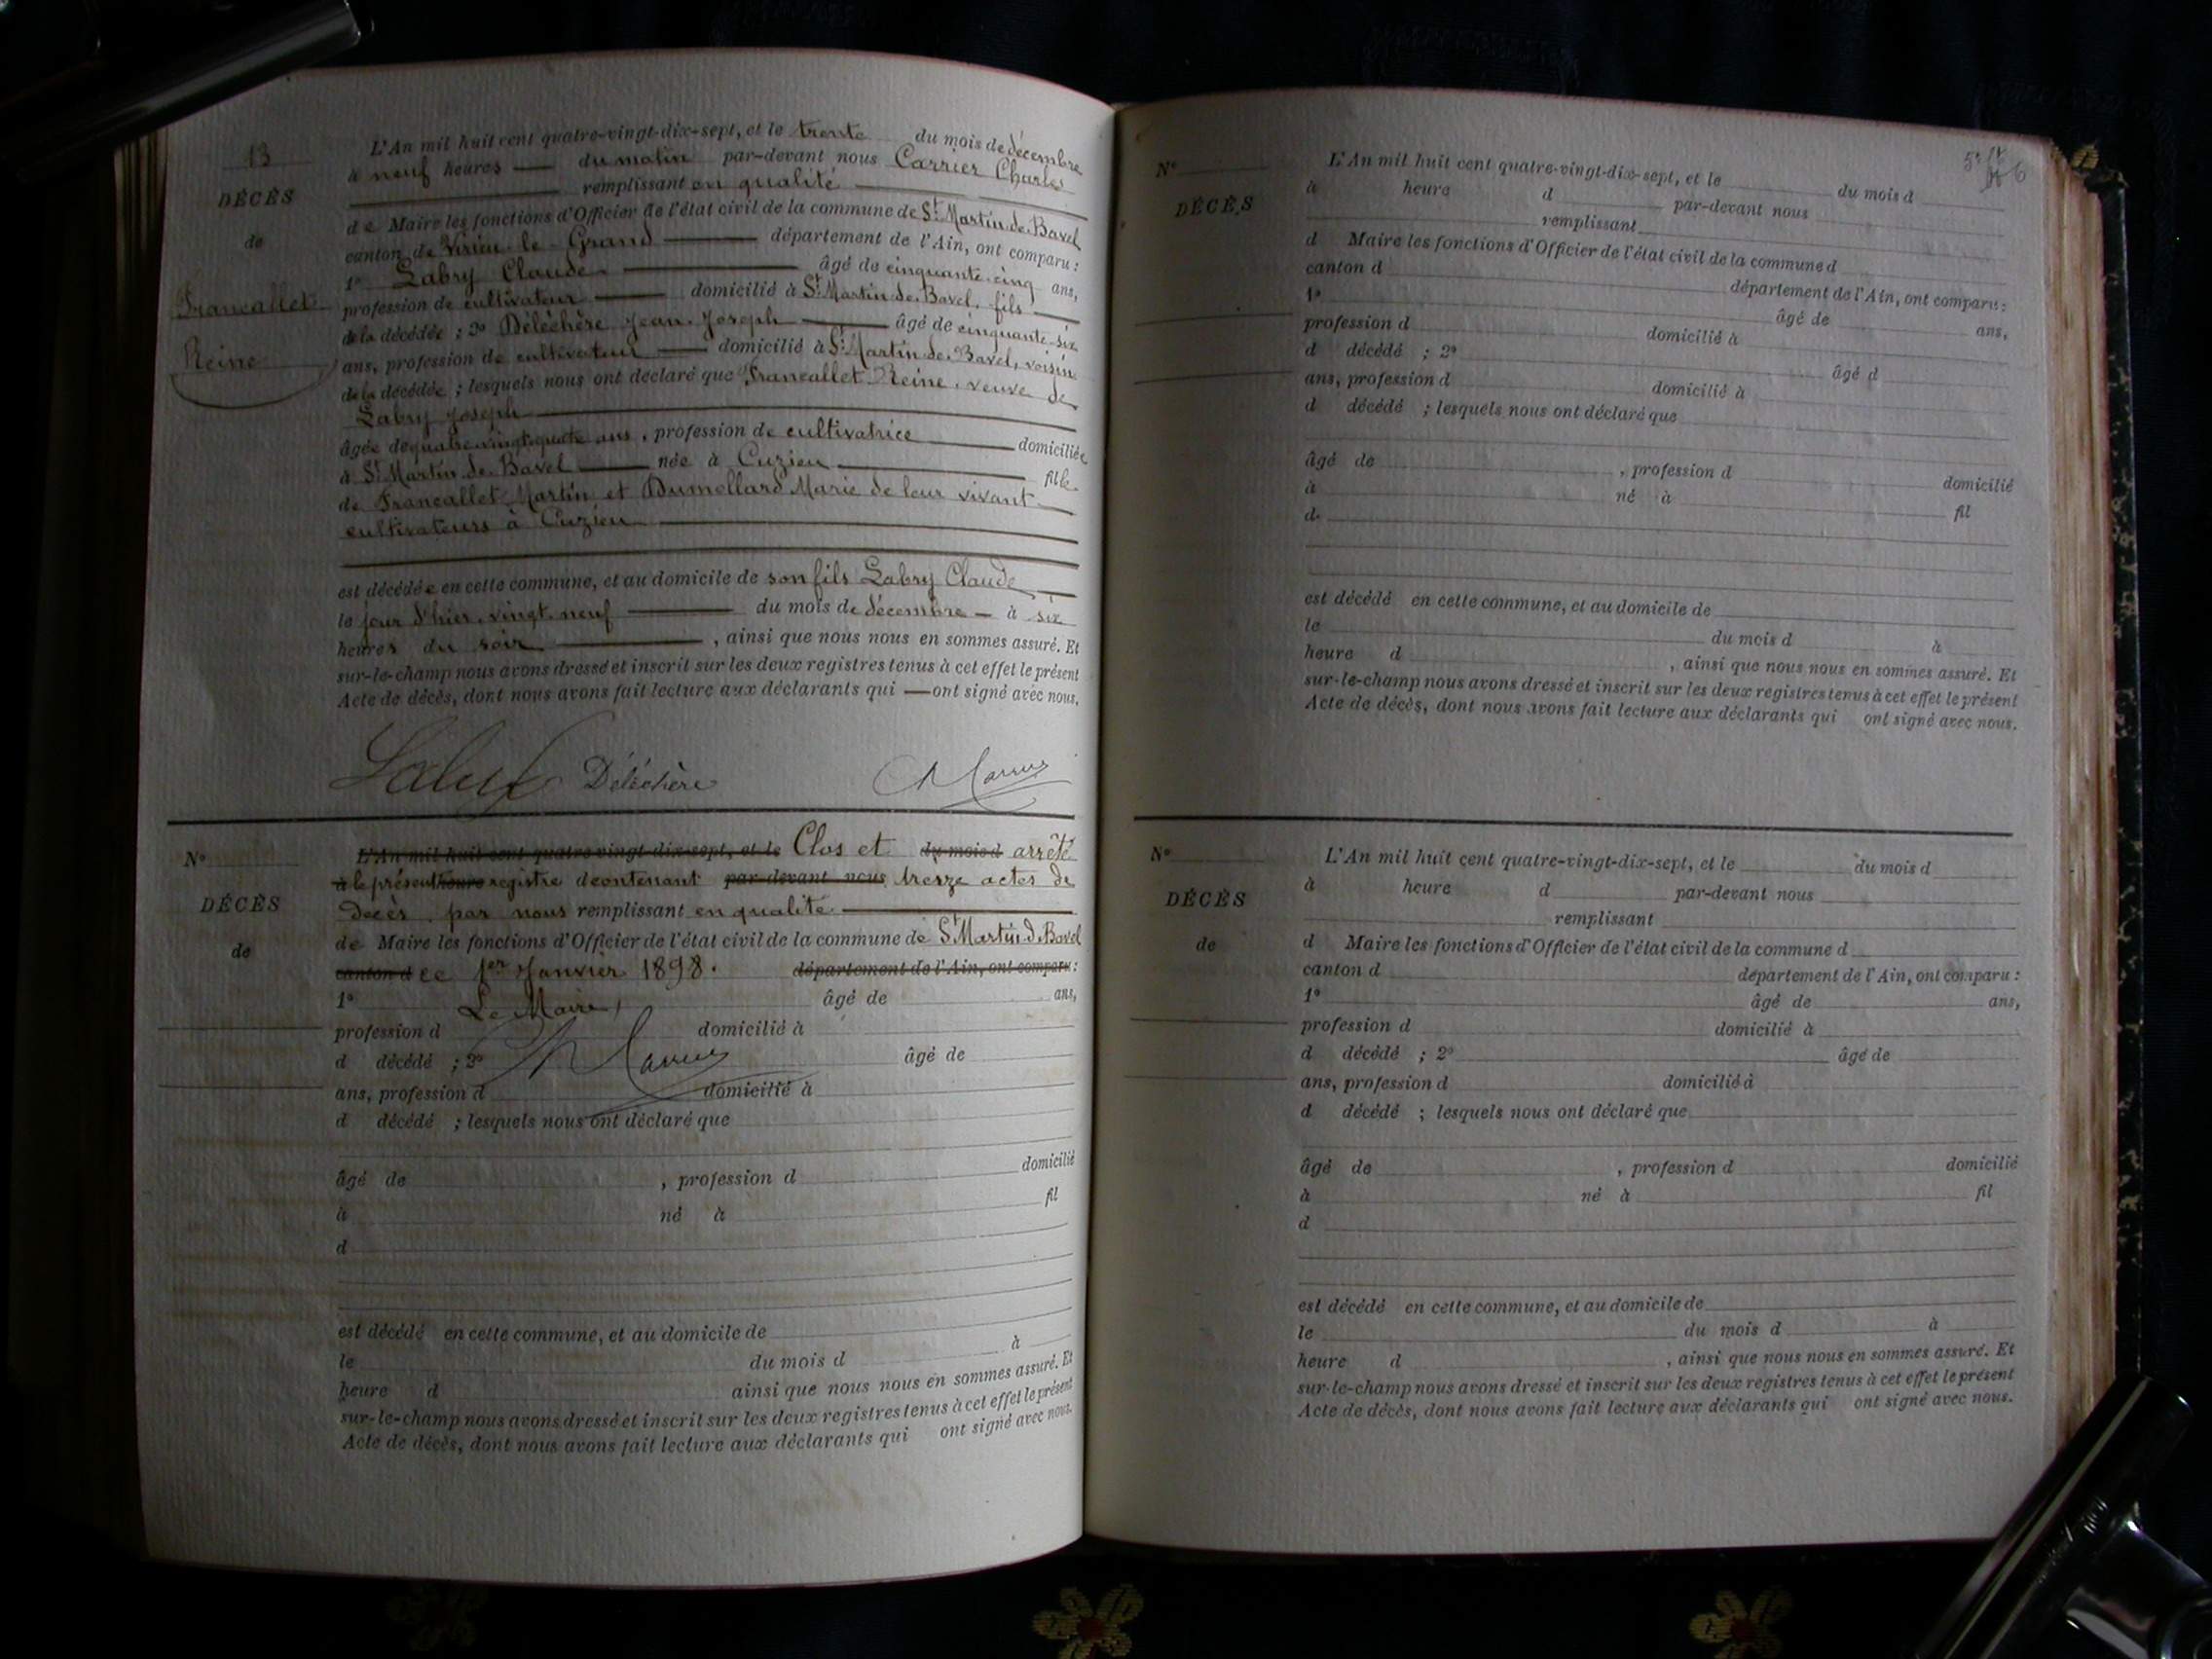 13
DÉCÈS
de
Francallet
Reine
L'An mil huit cent quatre-vingt-dix-sept, et le trente du mois de décembre
à neuf heures du matin par-devant nous Carrier Charles
remplissant en qualité
de Maire les fonctions d'Officier de l'état civil de la commune de St Martin de Bavel
canton de Virieu-le-Grand département de l'Ain, ont comparu :
1° Labry Claude âgé de cinquante-cinq ans,
profession de cultivateur domicilié à St Martin de Bavel, fils
de la décédée ; 2° Déléchère Jean-Joseph âgé de cinquante-six
ans, profession de cultivateur domicilié à St Martin de Bavel, voisin
de la décédée ; lesquels nous ont déclaré que Francallet Reine, veuve de
Labry Joseph
âgée de quatre-vingt-quatre ans, profession de cultivatrice domiciliée
à St Martin de Bavel née à Cuzieu fille
de Francallet Martin et Dumollard Marie de leur vivant
cultivateurs à Cuzieu
est décédée en cette commune, et au domicile de son fils Labry Claude
le jour d'hier, vingt-neuf du mois de décembre à six
heures du soir, ainsi que nous nous en sommes assuré. Et
sur-le-champ nous avons dressé et inscrit sur les deux registres tenus à cet effet le présent
Acte de décès, dont nous avons fait lecture aux déclarants qui ont signé avec nous.
Labry Déléchère Ch Carrier
N°
DÉCÈS
de
L'An mil huit cent quatre-vingt-dix-sept, et le Clos et du mois d arrêté
à le présent heure registre d contenant par-devant nous treize actes de
décès, par nous remplissant en qualité
de Maire les fonctions d'Officier de l'état civil de la commune de St Martin d. Bavel
canton d ce 1er Janvier 1898. département de l'Ain, ont comparu :
1° Le Maire, âgé de ans,
profession d domicilié à
d décédé ; 2° Ch Carrier âgé de
ans, profession d domicilié à
d décédé ; lesquels nous ont déclaré que
âgé de , profession d domicilié
à né à fil
d
est décédé en cette commune, et au domicile de
le du mois d à
heure d ainsi que nous nous en sommes assuré. Et
sur-le-champ nous avons dressé et inscrit sur les deux registres tenus à cet effet le présent
Acte de décès, dont nous avons fait lecture aux déclarants qui ont signé avec nous.
N°
DÉCÈS
L'An mil huit cent quatre-vingt-dix-sept, et le du mois d
à heure d par-devant nous
remplissant
d Maire les fonctions d'Officier de l'état civil de la commune d
canton d département de l'Ain, ont comparu :
1° âgé de ans,
profession d domicilié à
d décédé ; 2° âgé d
ans, profession d domicilié à
d décédé ; lesquels nous ont déclaré que
âgé de , profession d domicilié
à né à fil
d
est décédé en cette commune, et au domicile de
le du mois d à
heure d , ainsi que nous nous en sommes assuré. Et
sur-le-champ nous avons dressé et inscrit sur les deux registres tenus à cet effet le présent
Acte de décès, dont nous avons fait lecture aux déclarants qui ont signé avec nous.
N°
DÉCÈS
de
L'An mil huit cent quatre-vingt-dix-sept, et le du mois d
à heure d par-devant nous
remplissant
d Maire les fonctions d'Officier de l'état civil de la commune d
canton d département de l'Ain, ont comparu :
1° âgé de ans,
profession d domicilié à
d décédé ; 2° âgé de
ans, profession d domicilié à
d décédé ; lesquels nous ont déclaré que
âgé de , profession d domicilié
à né à fil
d
est décédé en cette commune, et au domicile de
le du mois d à
heure d , ainsi que nous nous en sommes assuré. Et
sur-le-champ nous avons dressé et inscrit sur les deux registres tenus à cet effet le présent
Acte de décès, dont nous avons fait lecture aux déclarants qui ont signé avec nous.